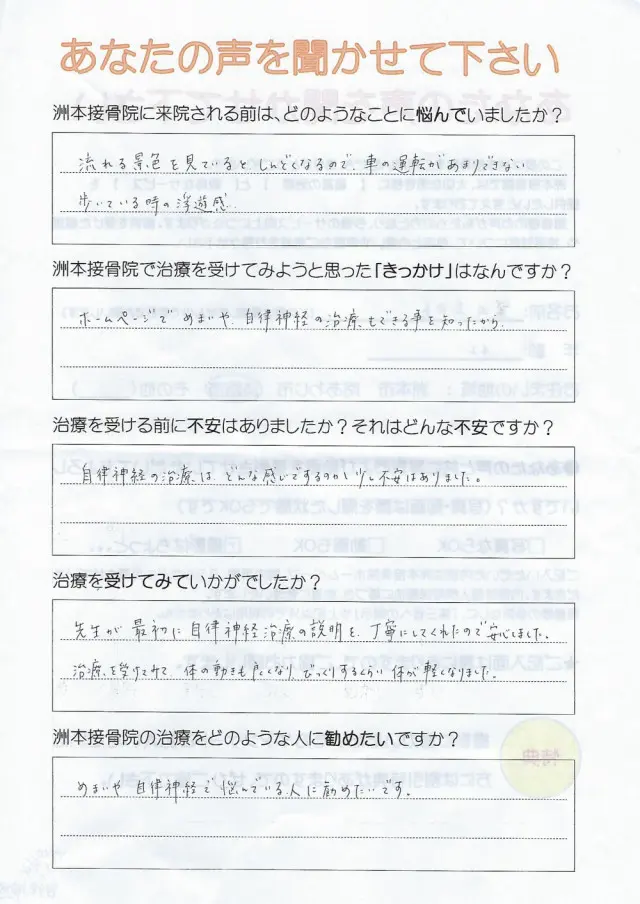 あなたの声を聞かせて下さい
洲本接骨院に来院される前は、どのようなことに悩んでいましたか？
流れる景色を見ているとしんどくなるので、車の運転があまりできない
歩いている時の浮遊感
洲本接骨院で治療を受けてみようと思った「きっかけ」はなんですか？
ホームページで めまいや、自律神経の治療もできる事を知ったから
治療を受ける前に不安はありましたか？それはどんな不安ですか？
自律神経の治療は、どんな感じでするのか少し不安はありました。
治療を受けてみていかがでしたか？
先生が最初に自律神経治療の説明を、丁寧にしてくれたので安心しました。
治療を受けてみて、体の動きも良くなり、びっくりするくらい体が軽くなりました。
洲本接骨院の治療をどのような人に勧めたいですか？
めまいや自律神経で悩んでいる人に勧めたいです。